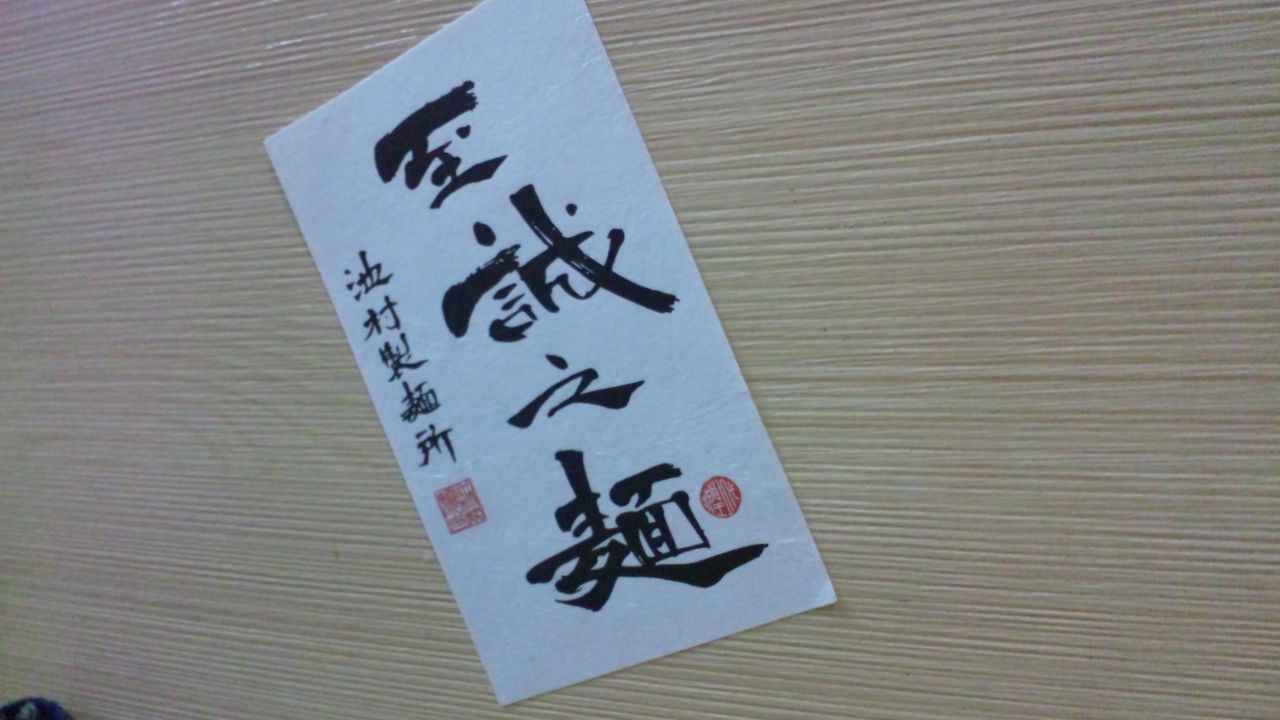 至誠之麺
池村製麺所